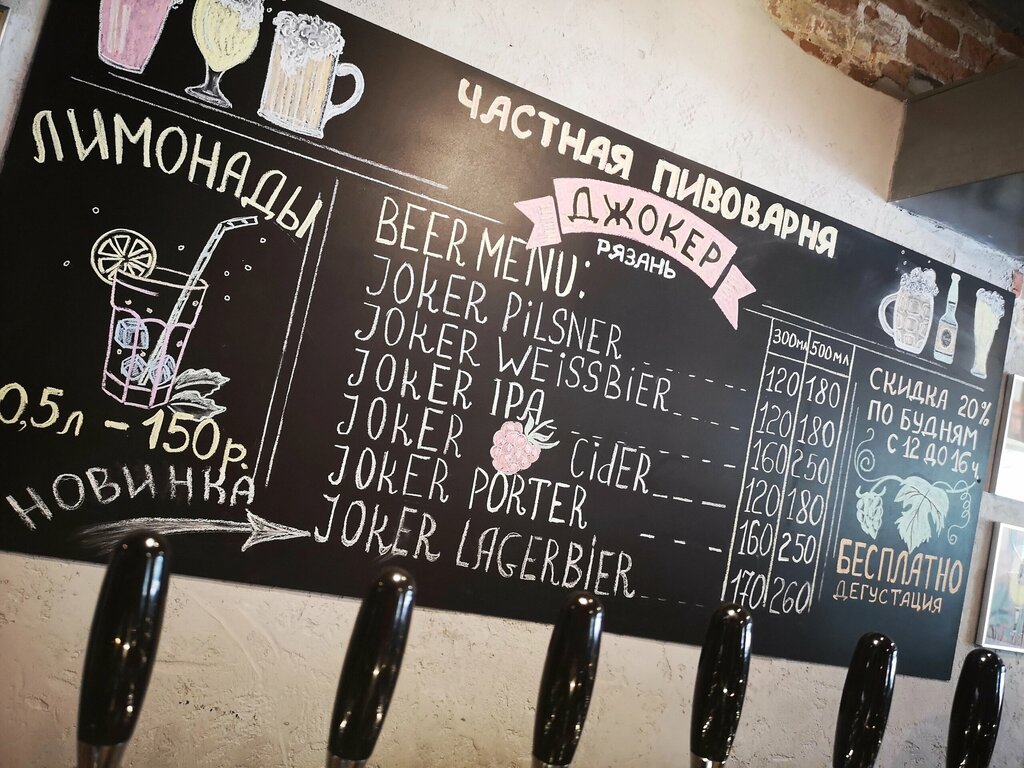 ЧАСТНАЯ ПИВОВАРНЯ
ДЖОКЕР
РЯЗАНЬ
ЛИМОНАДЫ
0,5л - 150р.
НОВИНКА
BEER MENU:
300мл 500мл
JOKER PiLSNER 120 180
JOKER WEiSSBiER 120 180
JOKER IPA 160 250
JOKER CidER 120 180
JOKER PORTER 160 250
JOKER LAGERBiER 170 260
СКИДКА 20%
ПО БУДНЯМ
С 12 ДО 16 ч
БЕСПЛАТНО
ДЕГУСТАЦИЯ